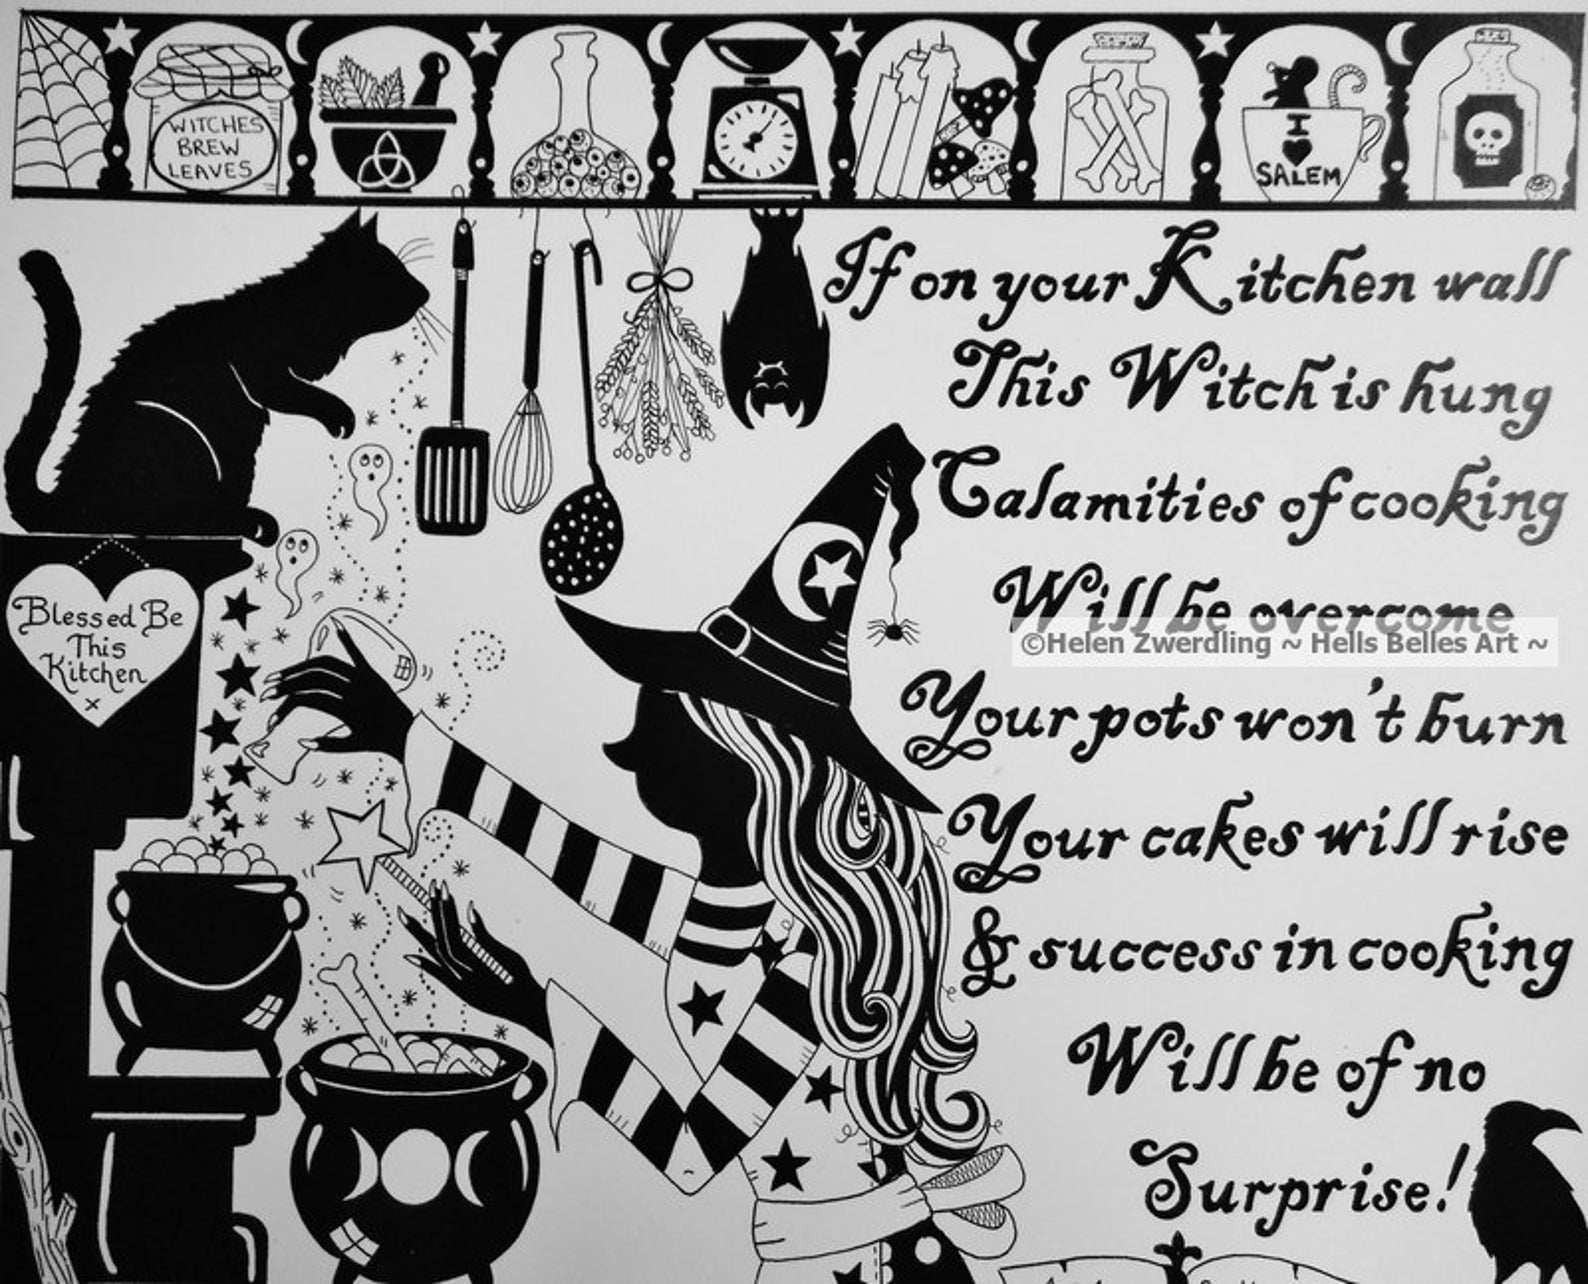 WITCHES
BREW
LEAVES
I
SALEM
If on your Kitchen wall
This Witch is hung
Calamities of cooking
Will be overcome
©Helen Zwerdling ~ Hells Belles Art ~
Your pots won't burn
Your cakes will rise
& success in cooking
Will be of no
Surprise!
Blessed Be
This
Kitchen
x